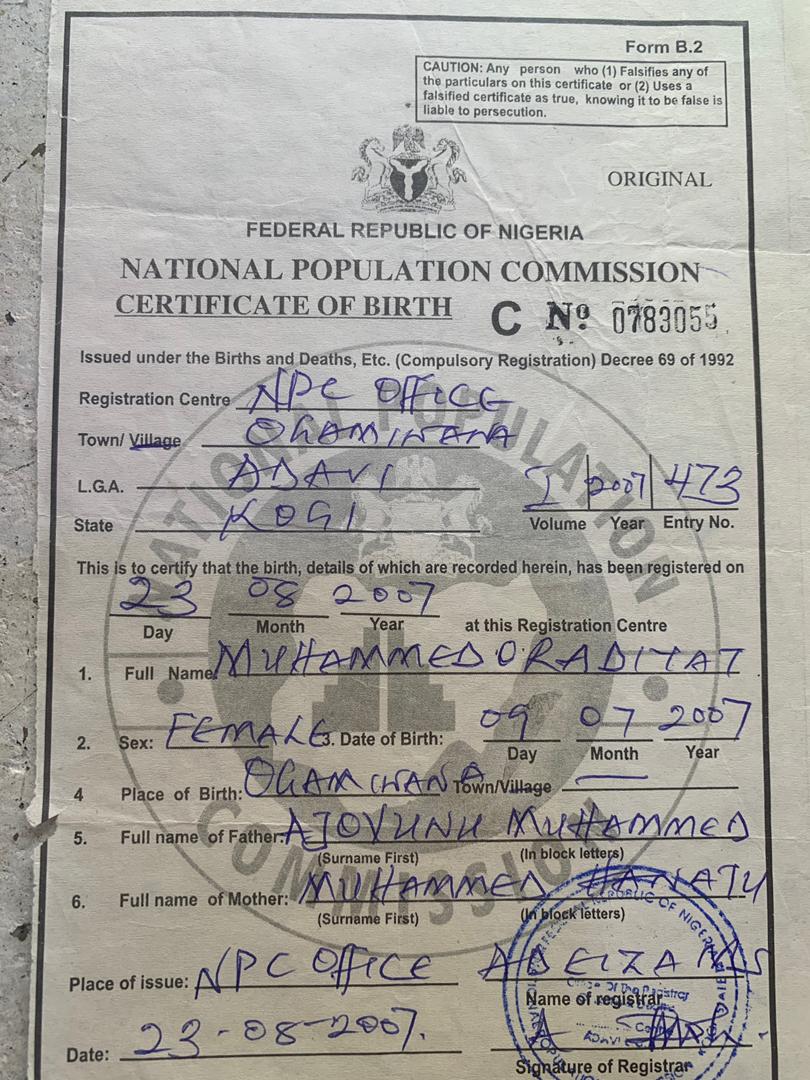 Form B.2
CAUTION: Any person who (1) Falsifies any of
the particulars on this certificate or (2) Uses a
falsified certificate as true, knowing it to be false is
liable to persecution.
ORIGINAL
FEDERAL REPUBLIC OF NIGERIA
NATIONAL POPULATION COMMISSION
CERTIFICATE OF BIRTH C No 0783055
Issued under the Births and Deaths, Etc. (Compulsory Registration) Decree 69 of 1992
Registration Centre NPC OFFICE
Town/ Village OGAMINANA
L.G.A. ADAVI
I 2007 473
State KOGI
Volume Year Entry No.
This is to certify that the birth, details of which are recorded herein, has been registered on
23 08 2007
Day Month Year at this Registration Centre
1. Full Name MUHAMMED O. RADIYAT
2. Sex: FEMALE 3. Date of Birth: 09 07 2007
Day Month Year
4 Place of Birth: OGAMINANA Town/Village
5. Full name of Father: AJOVUNU MUHAMMED
(Surname First) (In block letters)
6. Full name of Mother: MUHAMMED
(Surname First) (In block letters)
Place of issue: NPC OFFICE ADEIZA
Name of registrar
Date: 23-08-2007.
Signature of Registrar
NATIONAL POPULATION
COMMISSION